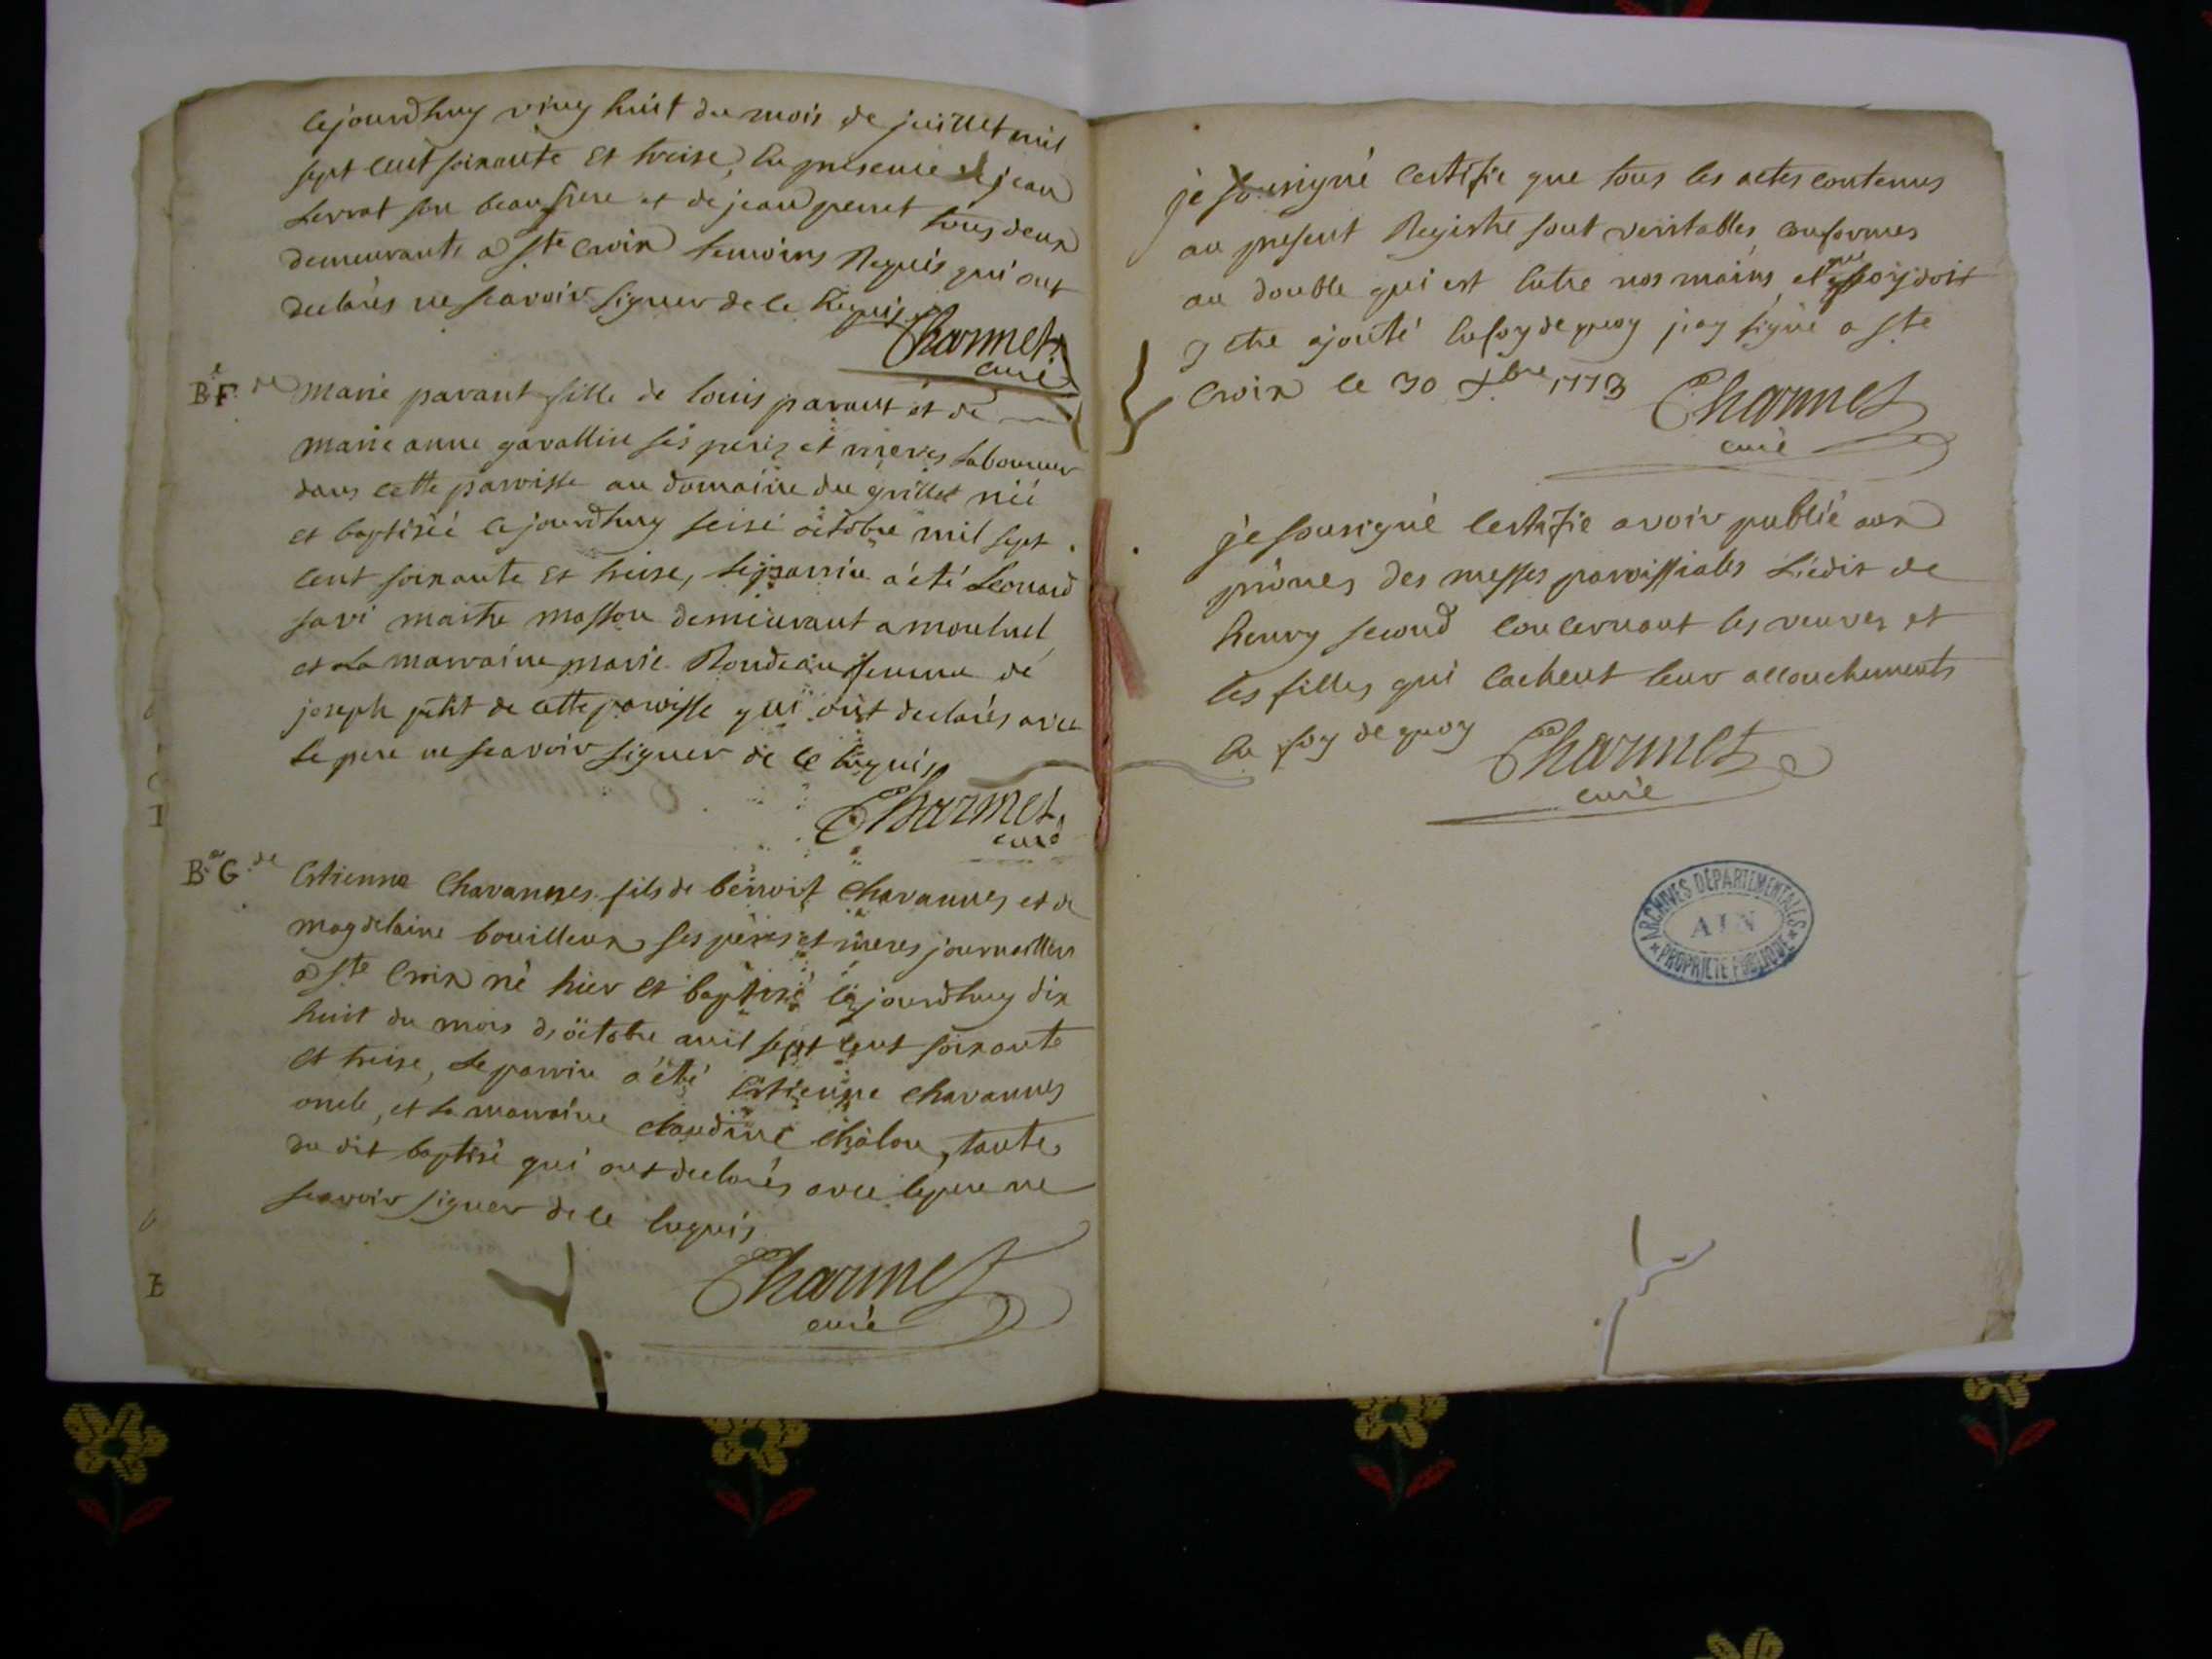 cejourdhuy ving huit du mois de juillet mil
sept cent soixante et treise, en presence de jean
Servat son beaufrere et de jean perret tous deux
demeurants a Ste Croix temoins Requis qui ont
declarés ne scavoir signer de ce Requis
Charmet
curé
B.e F. de Marie pavant fille de louis pavant et de
marie anne gavallin ses peres et meres laboureur
dans cette paroisse au domaine du grillet néé
et baptiséé cejourdhuy seise octobre mil sept
cent soixante et treise, le parrin a été Leonard
savi maitre masson demeurant a moutuel
et La marraine marie Rondeau femme de
joseph petit de cette paroisse qui ont declarés avec
le pere ne scavoir signer de ce Enquis
Charmet
curé
B.e G. de Estienne Chavannes fils de benoit Chavannes et de
magdelaine bouilleux ses peres et meres journailliers
a Ste Croix né hier et baptisé cejourdhuy dix
huit du mois d'octobre mil sept cent soixante
et treise, le parrin a été Estienne Chavannes
oncle, et la marraine claudine Châlon, tante
du dit baptisé qui ont declarés avec le pere ne
scavoir signer de ce Enquis
Charmet
curé
je sousigné Certifie que tous les actes contenus
au present Registre sont veritables, conformes
au double qui est Entre nos mains, et que foy doit
y etre ajouté En foy de quoy j'ay signé a Ste
Croix le 30 xbre 1773
Charmet
curé
je sousigné Certifie avoir publié aux
prônes des messes paroissiales L'édit de
henry second Concernant les veuves et
les filles qui Cachent leur accouchements
En foy de quoy
Charmet
curé
ARCHIVES DEPARTEMENTALES
AIN
* PROPRIETE PUBLIQUE *